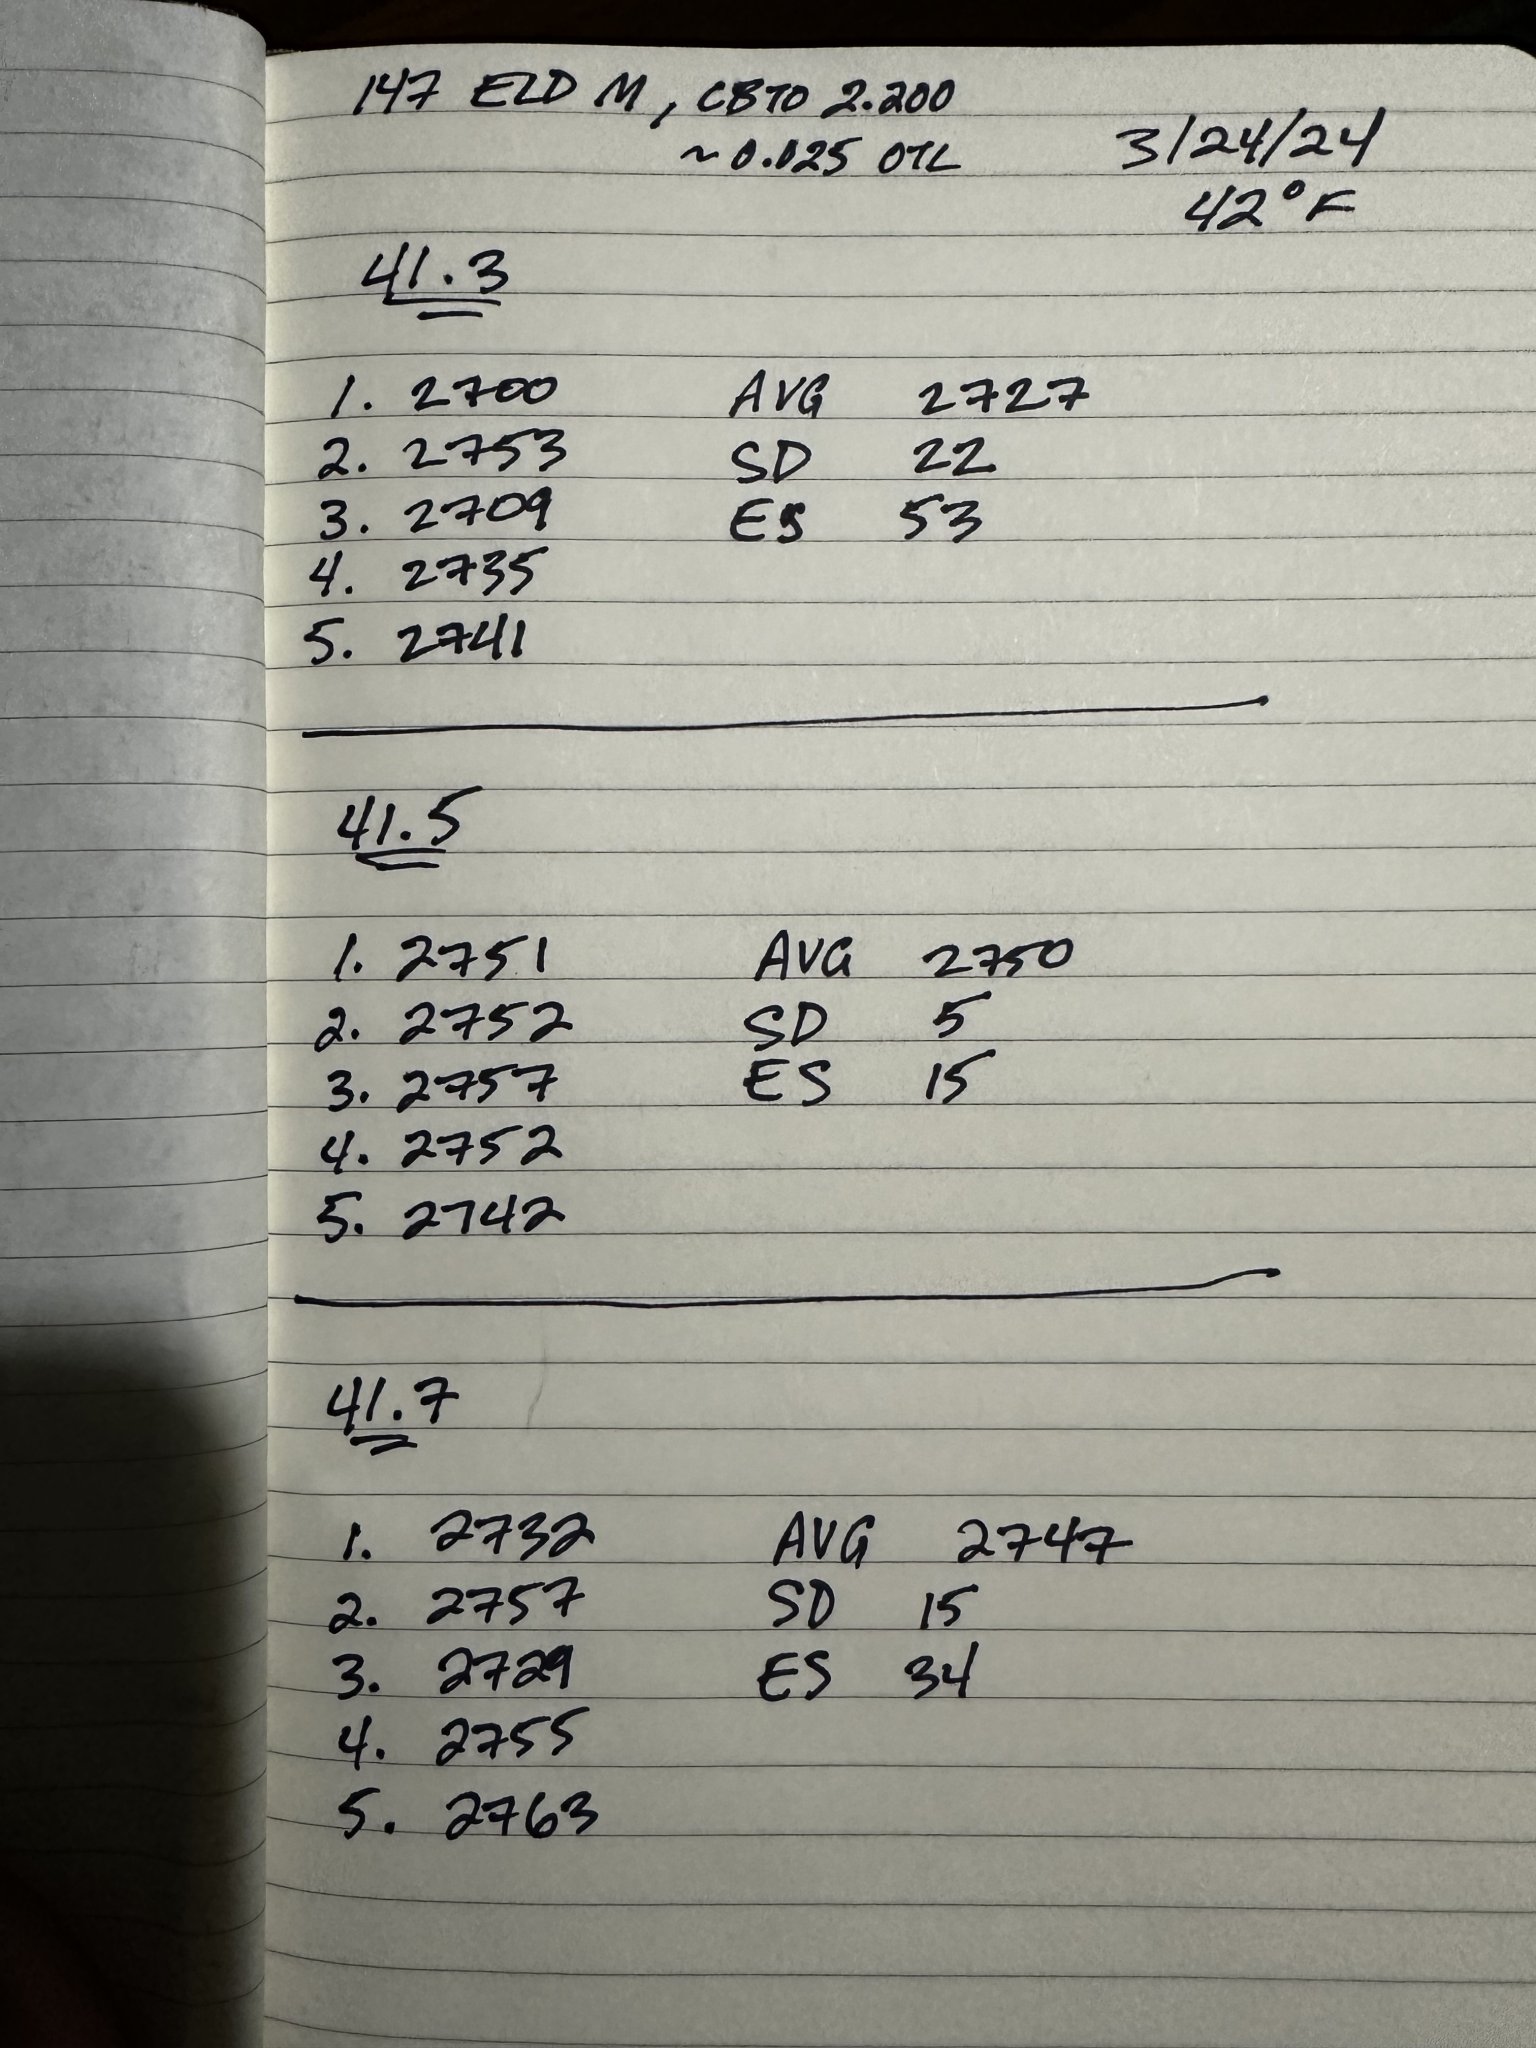 147 ELD M, CBTO 2.200
~0.025 OTL
3/24/24
42°F
41.3
1. 2700 AVG 2727
2. 2753 SD 22
3. 2709 ES 53
4. 2735
5. 2741
41.5
1. 2751 AVG 2750
2. 2752 SD 5
3. 2757 ES 15
4. 2752
5. 2742
41.7
1. 2732 AVG 2747
2. 2757 SD 15
3. 2729 ES 34
4. 2755
5. 2763